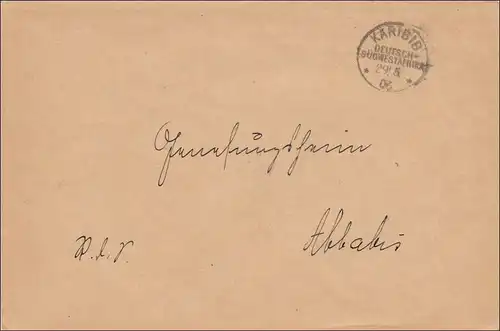 KARIBIB
DEUTSCH-
SÜDWESTAFRIKA
29.5.
06
Genesungsheim
Abbabis